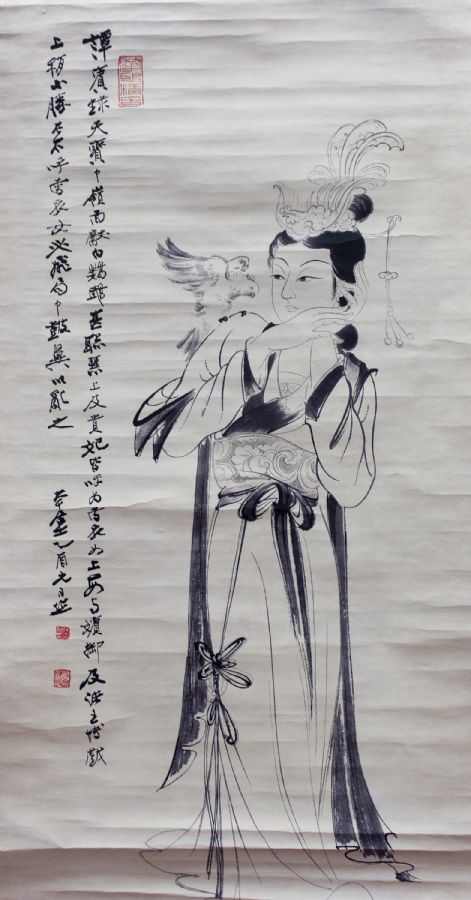 譚賓録天寶中嶺南献白鸚鵡甚聪慧上及貴妃皆呼为雪衣女上每与嬪御及诸王博戲
上稍不勝左右呼雪衣女必飛局中鼓翼以亂之
乙酉元日